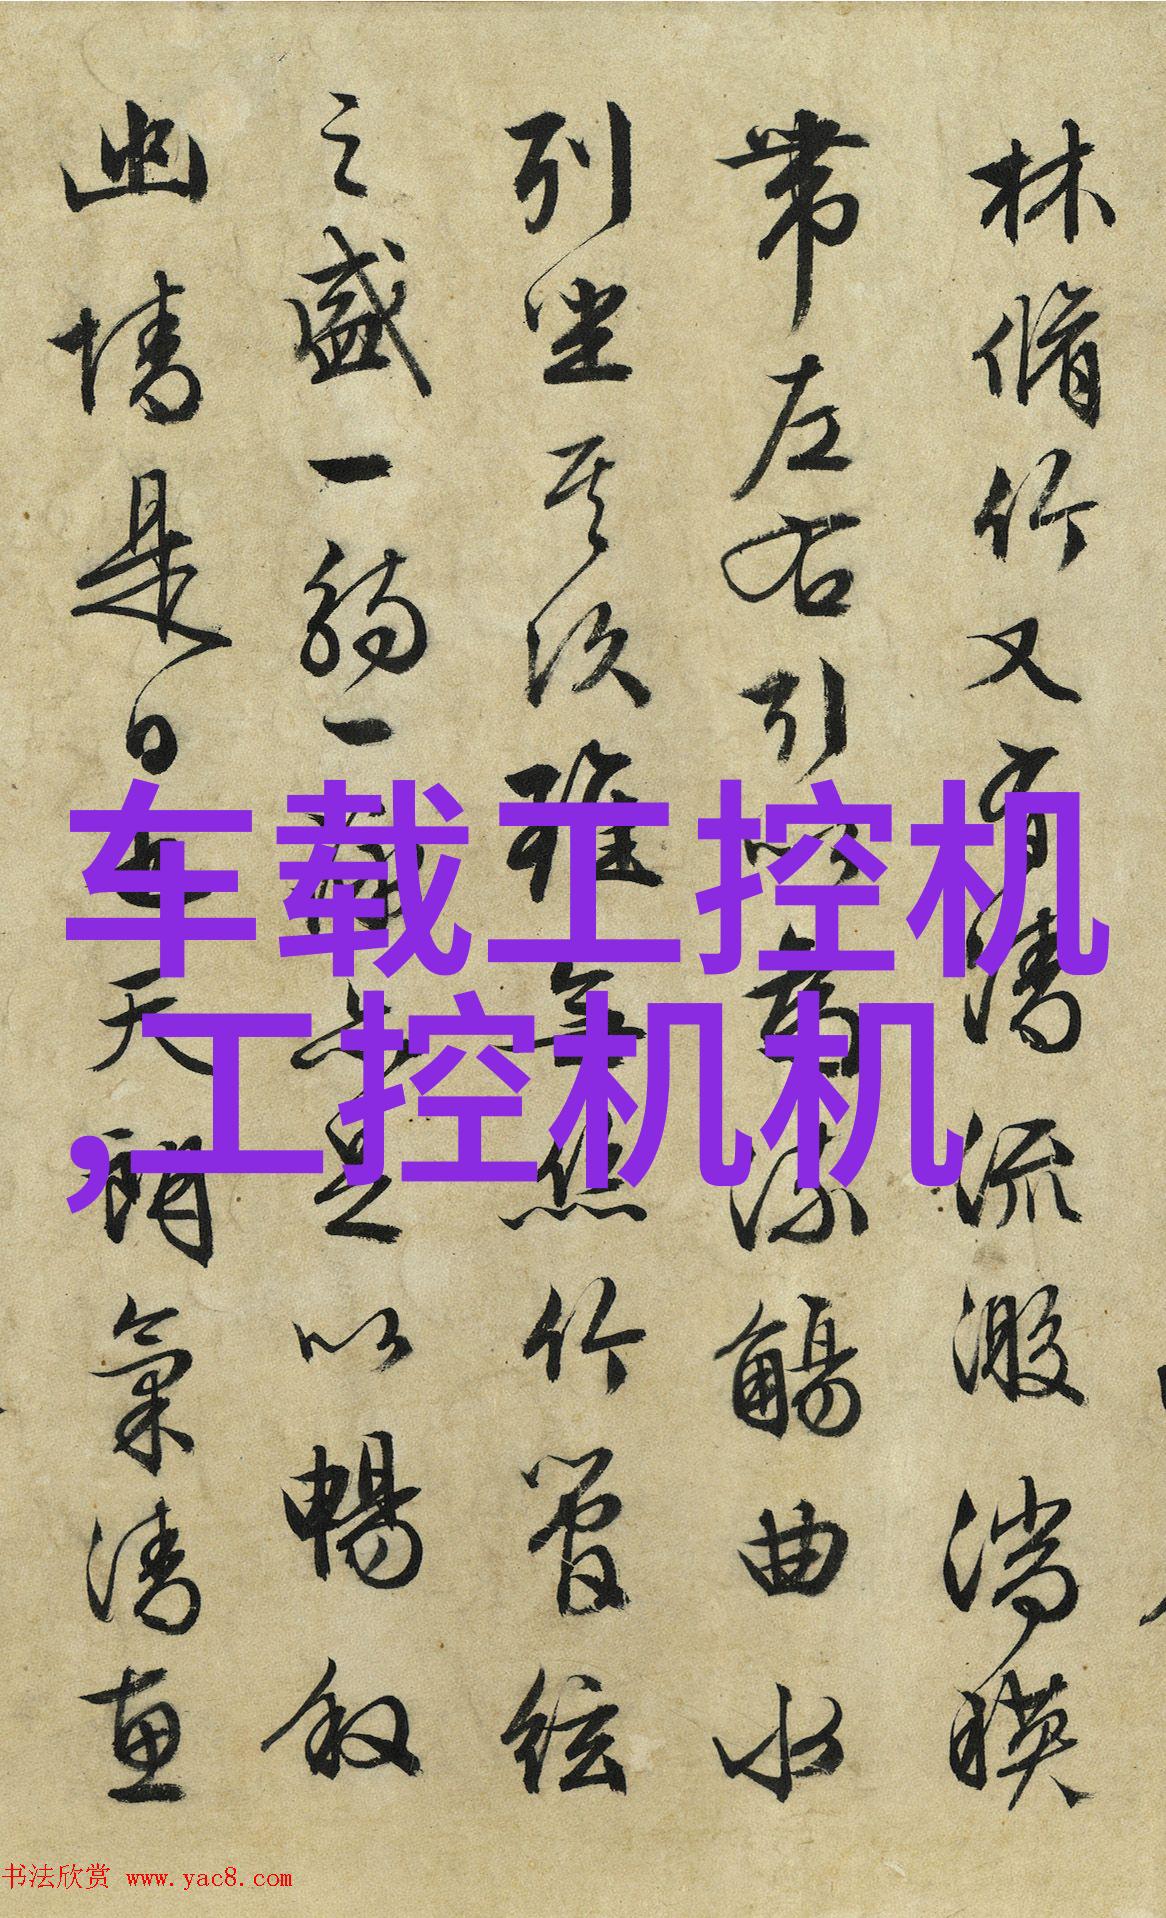 林脩竹又有清流激湍暎
帶左右引以為流觴曲水
列坐其次雖無絲竹管絃
之盛一觴一詠亦足以暢叙
幽情是日也天朗氣清惠
车载工控机
,工控机机
书法欣赏 www.yac8.com